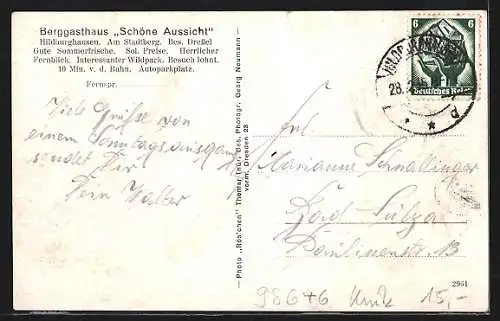 Berggasthaus „Schöne Aussicht"
Hildburghausen. Am Stadtberg. Bes. Dreßel
Gute Sommerfrische. Sol. Preise. Herrlicher
Fernblick. Interessanter Wildpark. Besuch lohnt.
10 Min. v. d. Bahn. Autoparkplatz.
Fernspr.
Viele Grüße von
einem Sonntagsausgang
sendet Dir
Dein Walter
— Photo „Rös'chen" Themar Thür. Ges. Photogr. Georg Neumann —
vorm. Dresden 28
6 6
Deutsches Reich
28.
d
Frl.
Marianne Schnallinger
Bad Sulza
Paulinenstr. 13
2961
98646 15,-